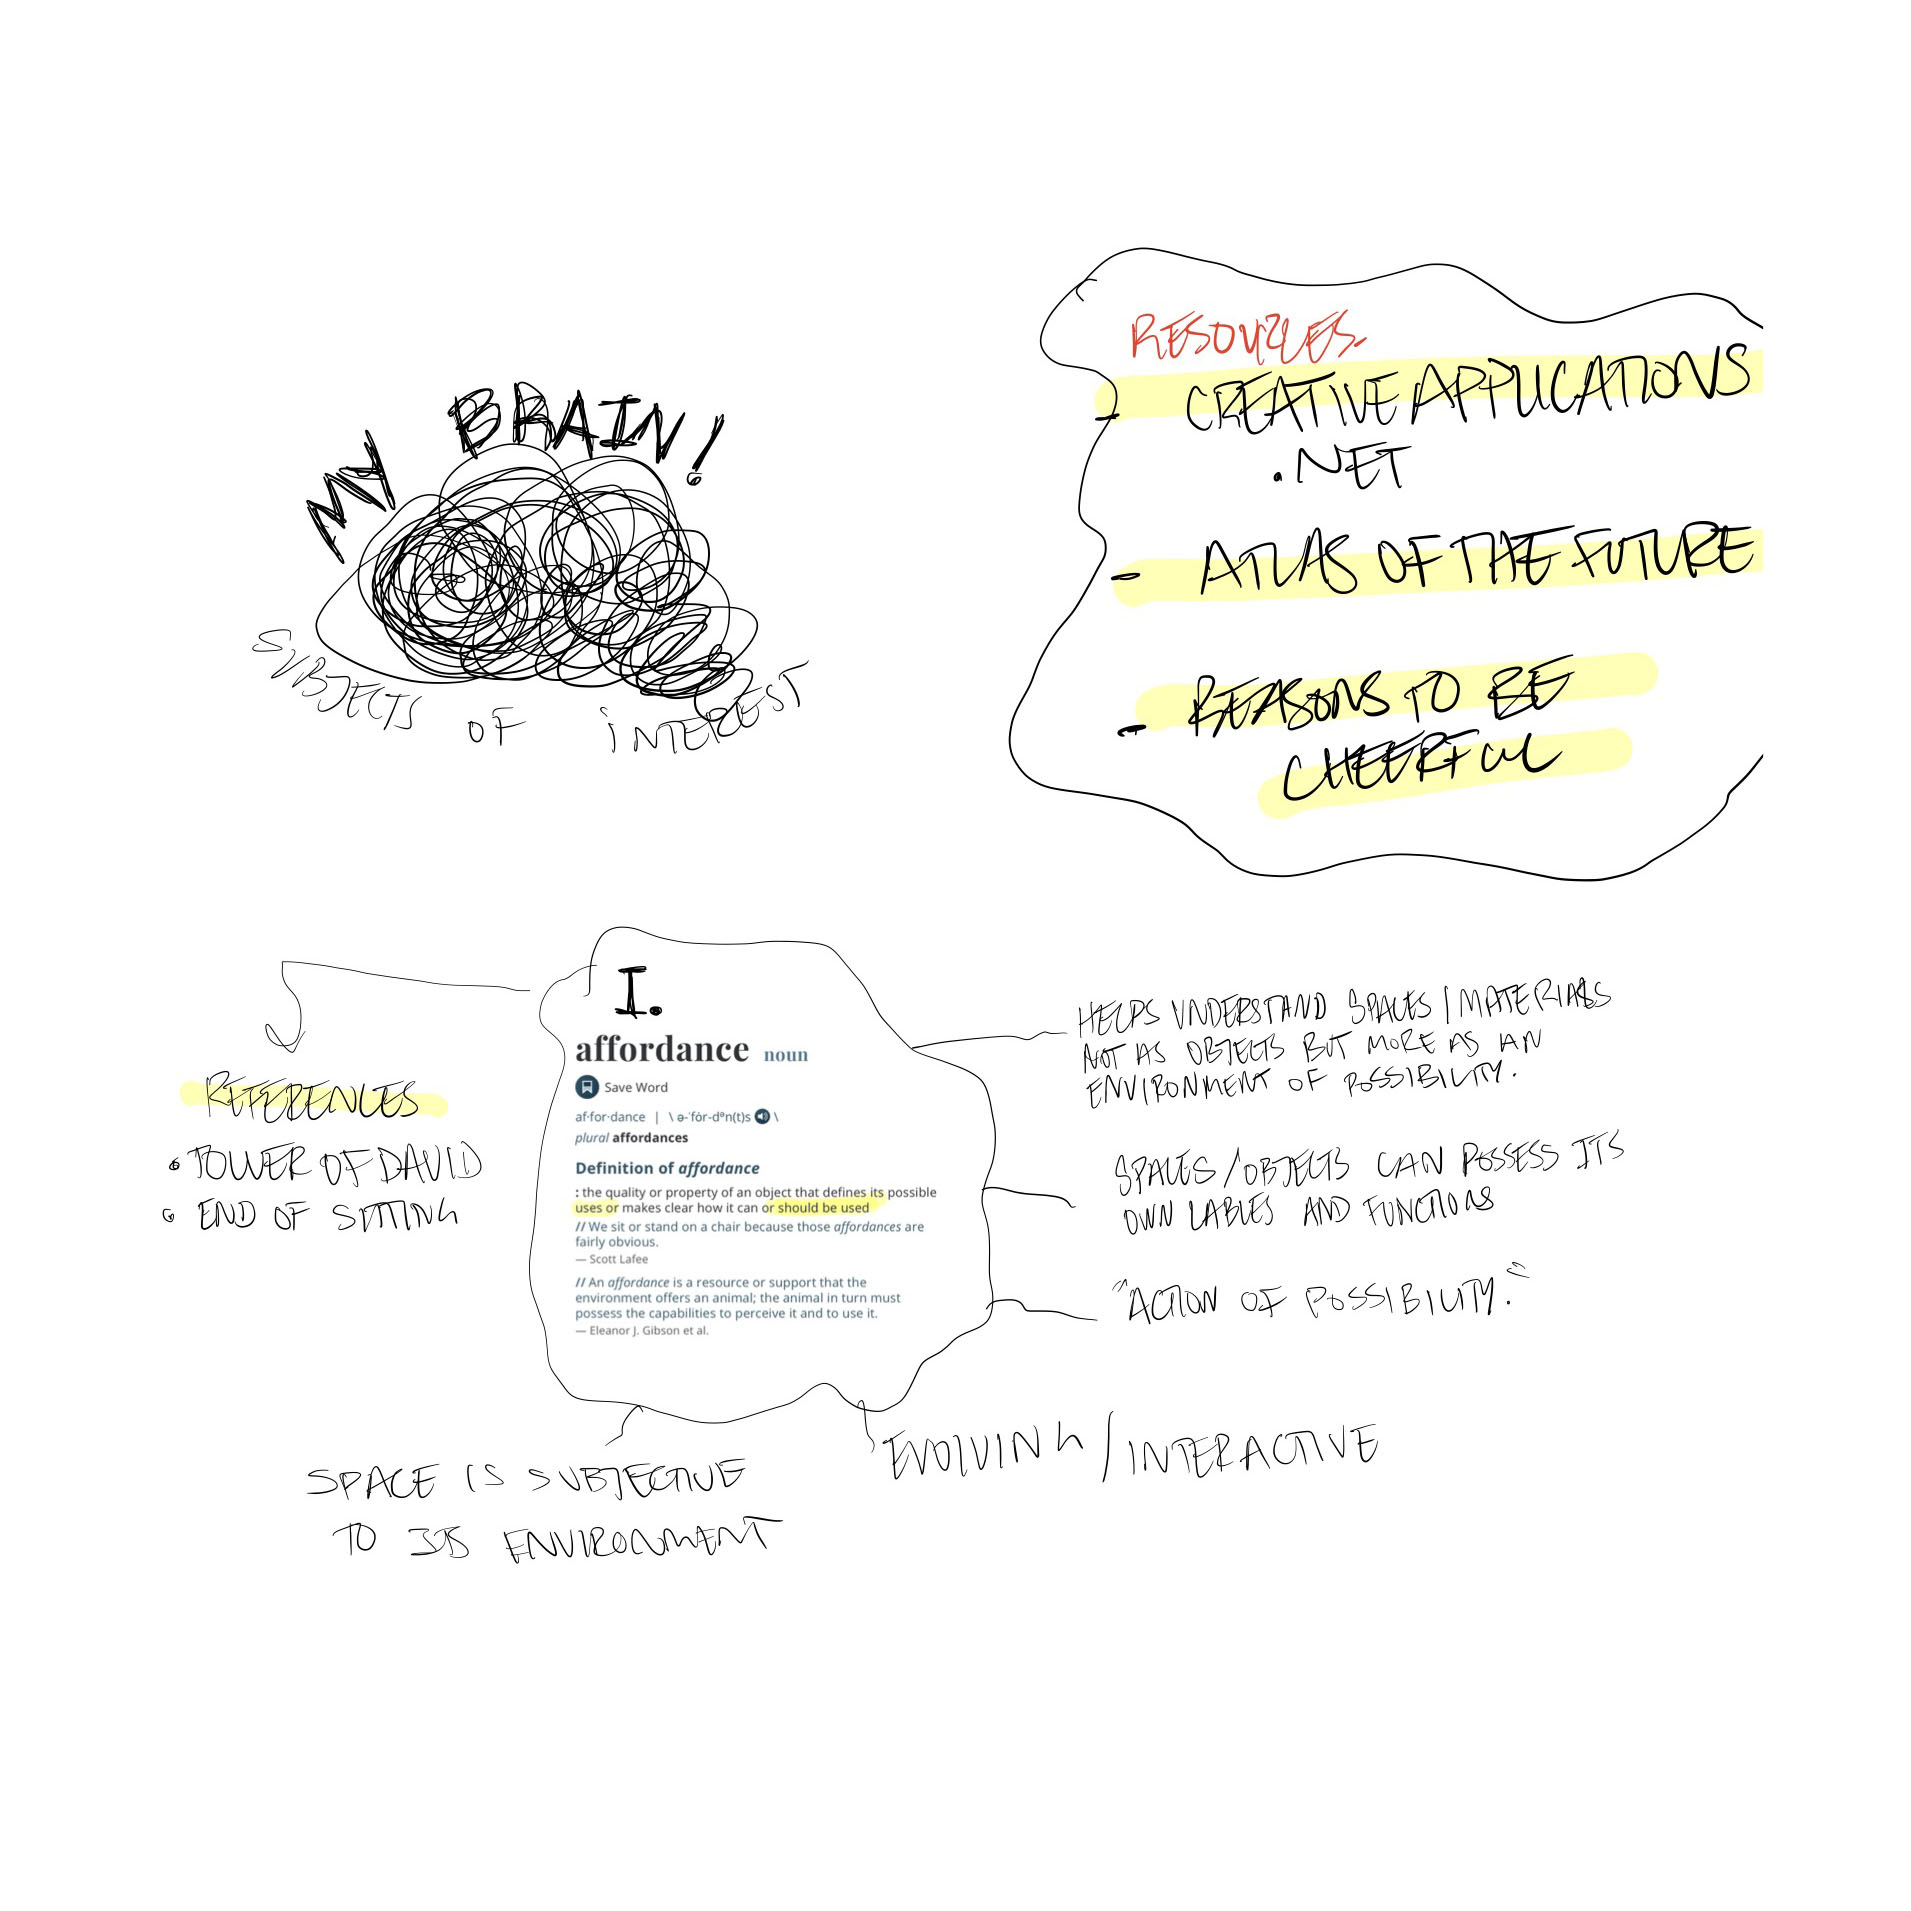 MY BRAIN!
SUBJECTS OF INTEREST
RESOURCES.
- CREATIVEAPPLICATIONS
.NET
- ATLAS OF THE FUTURE
- REASONS TO BE
CHEERFUL
I.
affordance noun
Save Word
af·for·dance | \ ə-ˈfȯr-dᵊn(t)s \
plural affordances
Definition of affordance
: the quality or property of an object that defines its possible
uses or makes clear how it can or should be used
// We sit or stand on a chair because those affordances are
fairly obvious.
— Scott Lafee
// An affordance is a resource or support that the
environment offers an animal; the animal in turn must
possess the capabilities to perceive it and to use it.
— Eleanor J. Gibson et al.
REFERENCES
• TOWER OF DAVID
• END OF SITTING
HELPS UNDERSTAND SPACES / MATERIALS
NOT AS OBJECTS BUT MORE AS AN
ENVIRONMENT OF POSSIBILITY.
SPACES/OBJECTS CAN POSSESS ITS
OWN LABLES AND FUNCTIONS
"ACTION OF POSSIBILITY."
EVOLVING/INTERACTIVE
SPACE IS SUBJECTIVE
TO ITS ENVIRONMENT